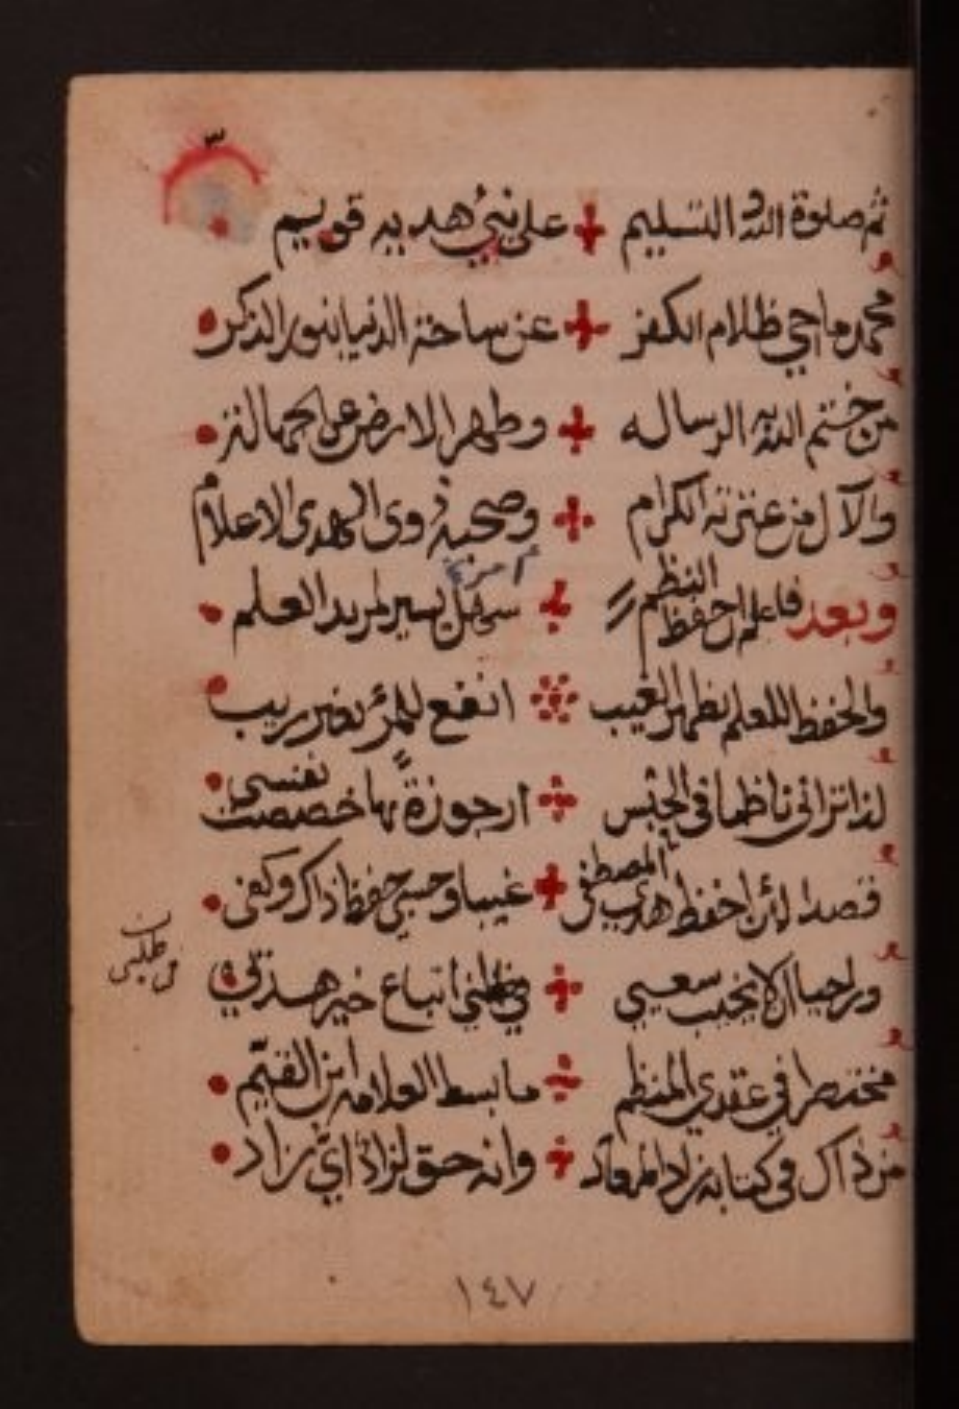 ٣
ثم صلوة الله والتسليم على نبي هديه قويم
محمد ماحي ظلام الكفر عن ساحة الدنيا بنور الذكر
من ختم الله به الرساله وطهر الارض عن الجهالة
والآل من عترته الكرام وصحبه ذوى الهدى الاعلام
وبعد فاعلم ان حفظ النظم سهل يسير لمريد العلم
والحفظ للعلم بظهر الغيب انفع للمرء بغير ريب
لذا ترانى ناظما في الجنس ارجوزة بها خصصت نفسى
قصدا لئن احفظ هدي المصطفى غيبا وحسبي حفظا ذاكر وكفى
وراجيا ان لا يخيب سعيي في اتباع خير هدي
مختصرا في عقدي المنظم ما بسط العلامه ابن القيّم
من ذاك في كتابه زاد المعاد وانه حق لزاد اي زاد
١٤٧